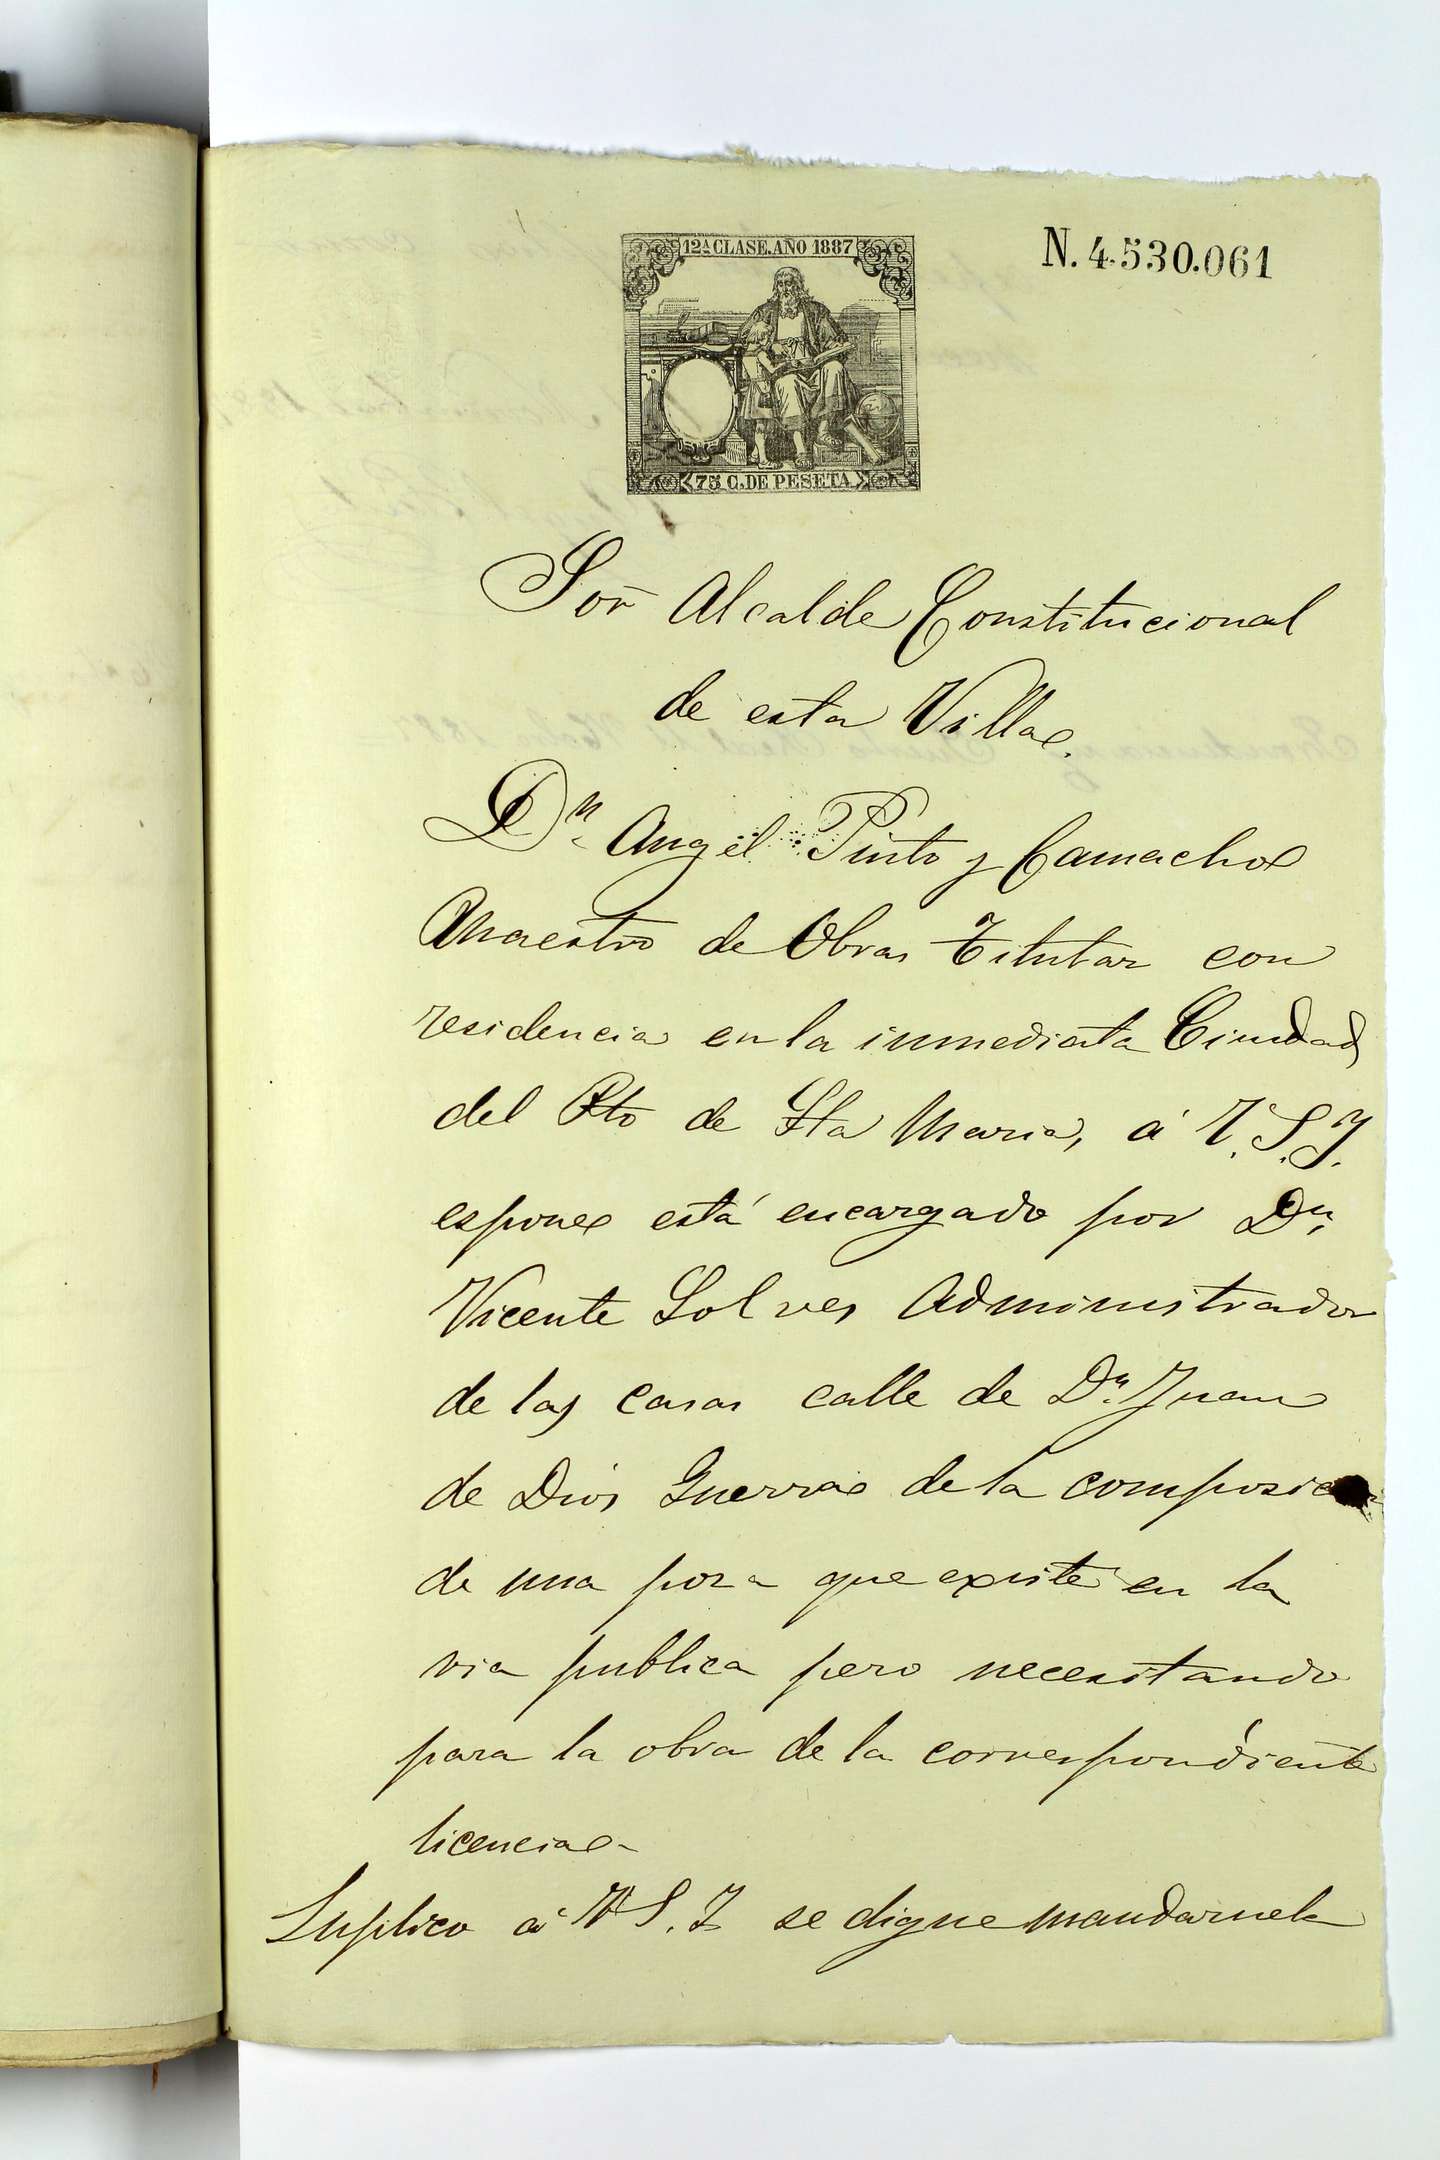 12ᴬ CLASE. AÑO 1887
N. 4.530.061
75 C. DE PESETA
Sor Alcalde Constitucional
de esta Villa.
Dn. Angel Pinto y Camacho
Maestro de Obras Titular con
residencia en la inmediata Ciudad
del Pto de Sta Maria, á V.S.I.
espone está encargado por Dn.
Vicente Solves Administrador
de las casas calle de Dn. Juan
de Dios Guerra de la composic
de una poza que existe en la
via publica pero necesitando
para la obra de la correspondiente
licencia-
Suplico á V S. I se digne mandarnela